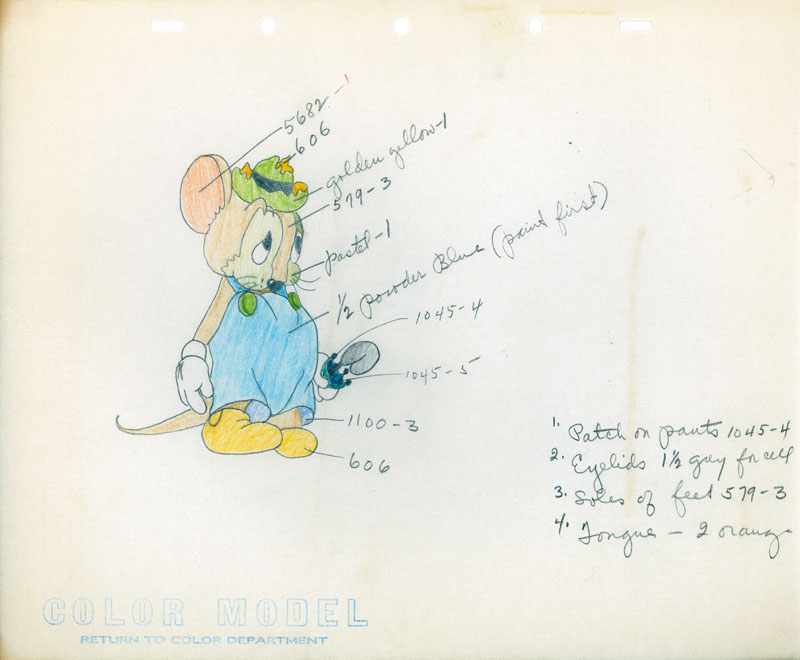 5682-1
606
golden yellow-1
579-3
pastel-1
1/2 Powder Blue (paint first)
1045-4
1045-5
1100-3
606
1. Patch on pants 1045-4
2. Eyelids 1 1/2 gray for cell
3. Soles of feet 579-3
4. Tongue - 2 orange
COLOR MODEL
RETURN TO COLOR DEPARTMENT